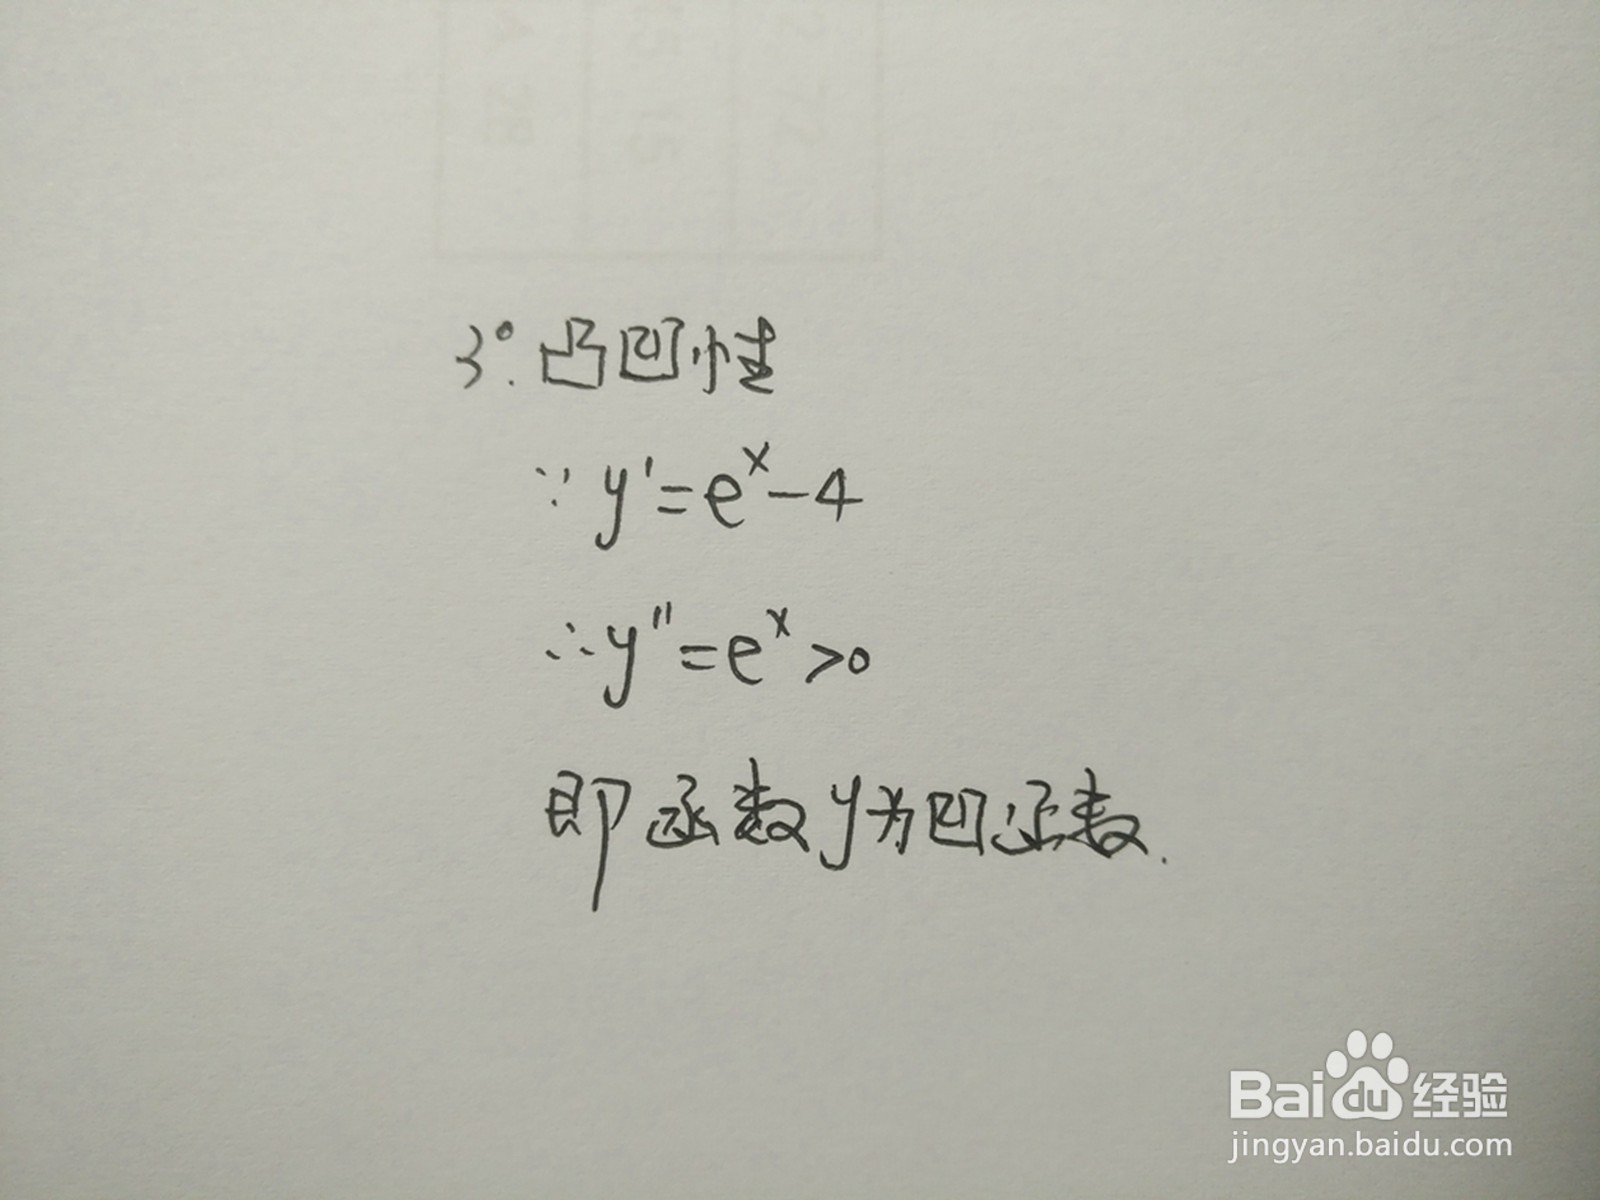 3°.凸凹性
∵y'=e^x-4
∴y''=e^x>0
即函数y为凹函数.
Baidu经验
jingyan.baidu.com